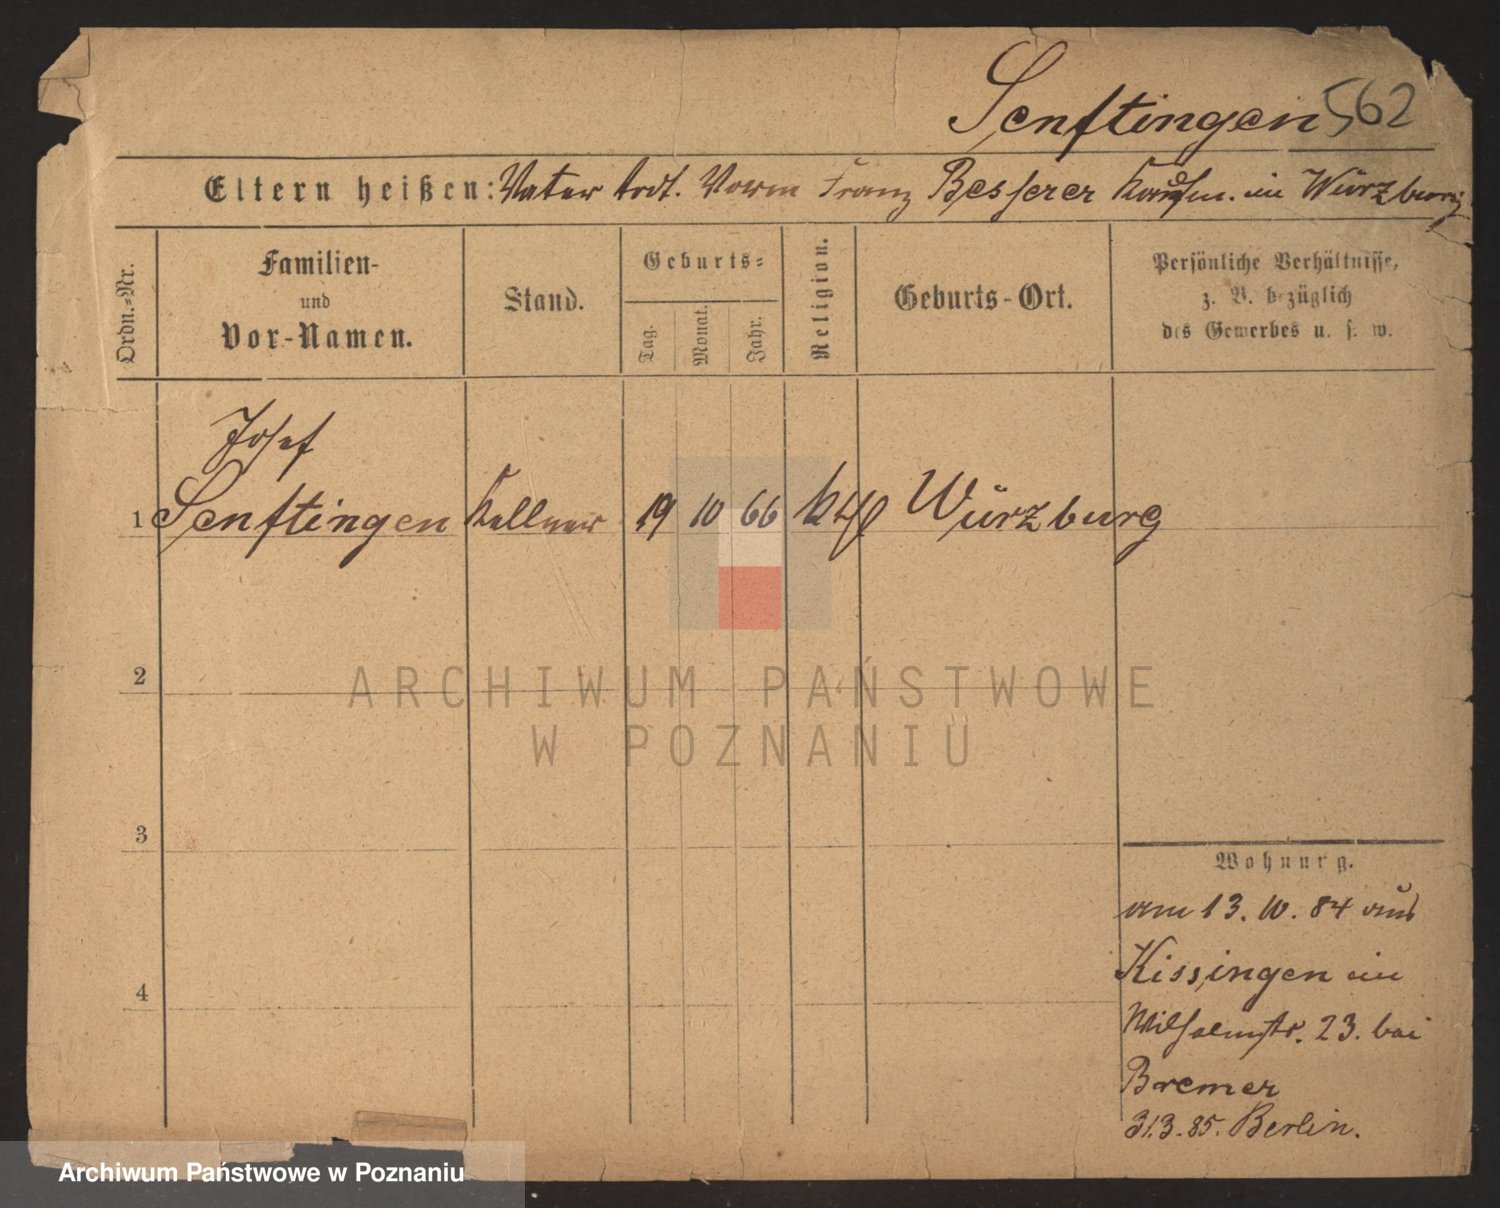 Senftingen 562
Eltern heißen: Vater todt. Vorm Franz Besserer Kaufm. in Würzburg
Ordn.-Nr.
Familien-
und
Vor-Namen.
Stand.
Geburts-
Tag.
Monat.
Jahr.
Religion.
Geburts-Ort.
Persönliche Verhältnisse,
z. B. bezüglich
des Gewerbes u. s. w.
Josef
1 Senftingen Kellner 19 10 66 kth Würzburg
2
3
4
Wohnung.
am 13.10.84 aus
Kissingen in
Wilhelmstr. 23. bei
Bremer
31.3.85. Berlin.
ARCHIWUM PAŃSTWOWE
W POZNANIU
Archiwum Państwowe w Poznaniu